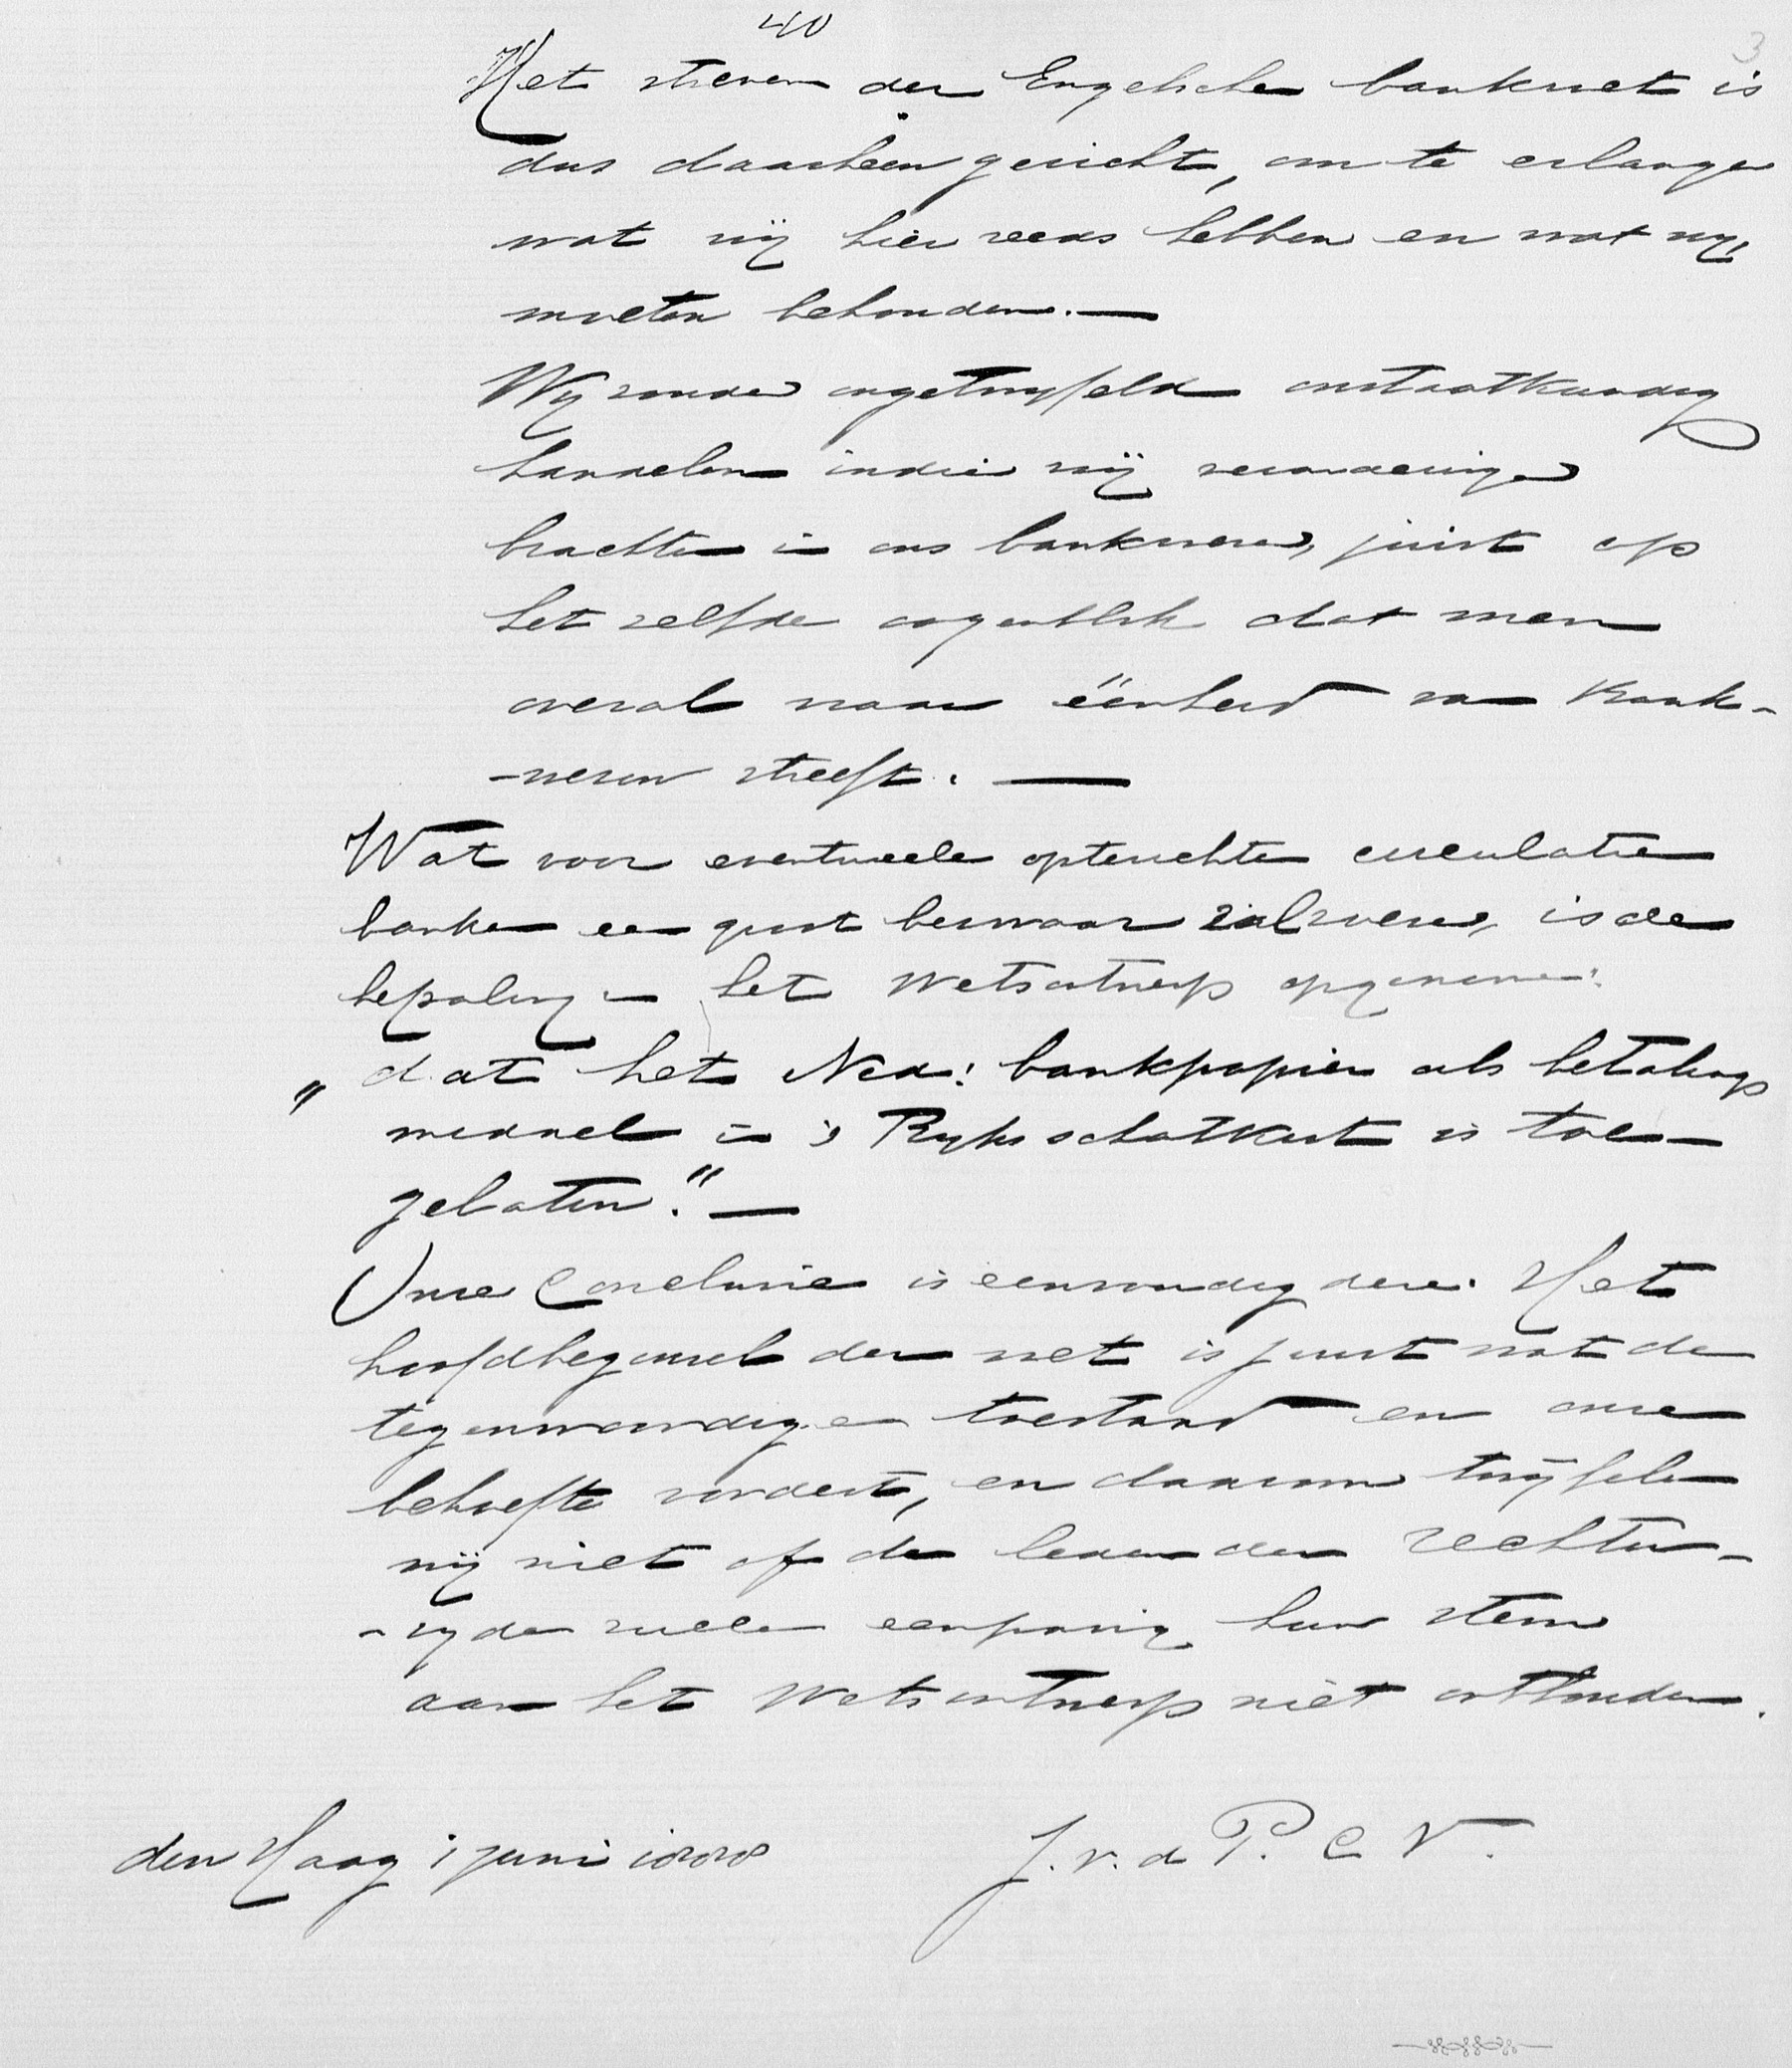 40
3
Het streven der Engelsche bankwet is
dus daarheen gericht, om te erlangen
wat wij hier reeds hebben en wat wij
moeten behouden. —
Wij zouden ongetwyfeld onstaatkundig
handelen indien wij veranderingen
brachten in ons bankwezen, juist op
het zelfde oogenblik dat men
overal naar éénheid van Bank-
-wezen streeft. —
Wat voor eventueele opterichten circulatie
banken een groot bezwaar zal wezen, is de
bepaling in het Wetsontwerp opgenomen:
„dat het Ned: bankpapier als betalings
middel in 's Ryks schatkist is toe-
gelaten." —
Onze Conclusie is eenvoudig deze. Het
hoofdbeginsel der wet is juist wat de
tegenwoordigen toestand en onze
behoefte vordert, en daarom twijfelen
wij niet of de leden der rechter-
-zyde zullen eenparig hun stem
aan het Wetsontwerp niet onthouden.
den Haag 1 juni 1888
J. v. d. P. C V.